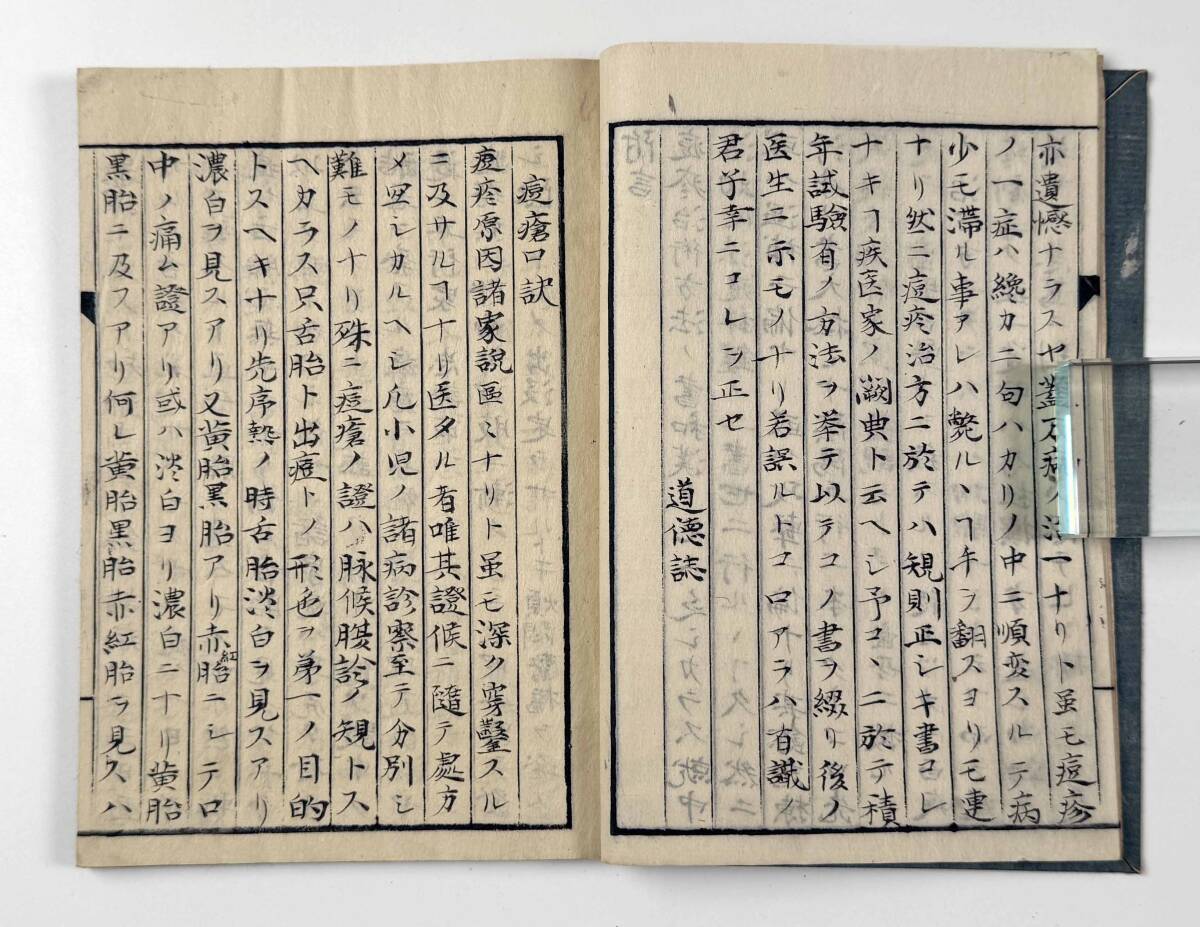 亦遺憾ナラスヤ蓋万病ノ治一ナリト虽モ痘疹
ノ一症ハ纔カニ二句ハカリノ中ニ順変スルテ病
少モ滞ル事アレハ斃ルヽヿ手ヲ翻スヨリモ連
ナリ然ニ痘疹治方ニ於テハ規則正シキ書コレ
ナキヿ疾医家ノ闕典ト云ヘシ予コヽニ於テ積
年試驗有ノ方法ヲ挙テ以テコノ書ヲ綴リ後ノ
医生ニ示モノナリ若誤ルトコロアラハ有識ノ
君子幸ニコレヲ正セ
道德誌
痘瘡口訣
痘疹原因諸家說區〻ナリト虽モ深ク穿鑿スル
ニ及サルヿナリ医タル者唯其證候ニ隨テ處方
メ困シカルヘシ凡小児ノ諸病診察至テ分別シ
難モノナリ殊ニ痘瘡ノ證ハ脉候腹診ノ規トス
ヘカラス只舌胎ト出痘トノ形色ヲ第一ノ目的
トスヘキナリ先序熱ノ時舌胎淡白ヲ見スアリ
濃白ヲ見スアリ又黄胎黒胎アリ赤紅胎ニシテ口
中ノ痛ム證アリ或ハ淡白ヨリ濃白ニナリ黄胎
黒胎ニ及スアリ何レ黄胎黒胎赤紅胎ヲ見スハ